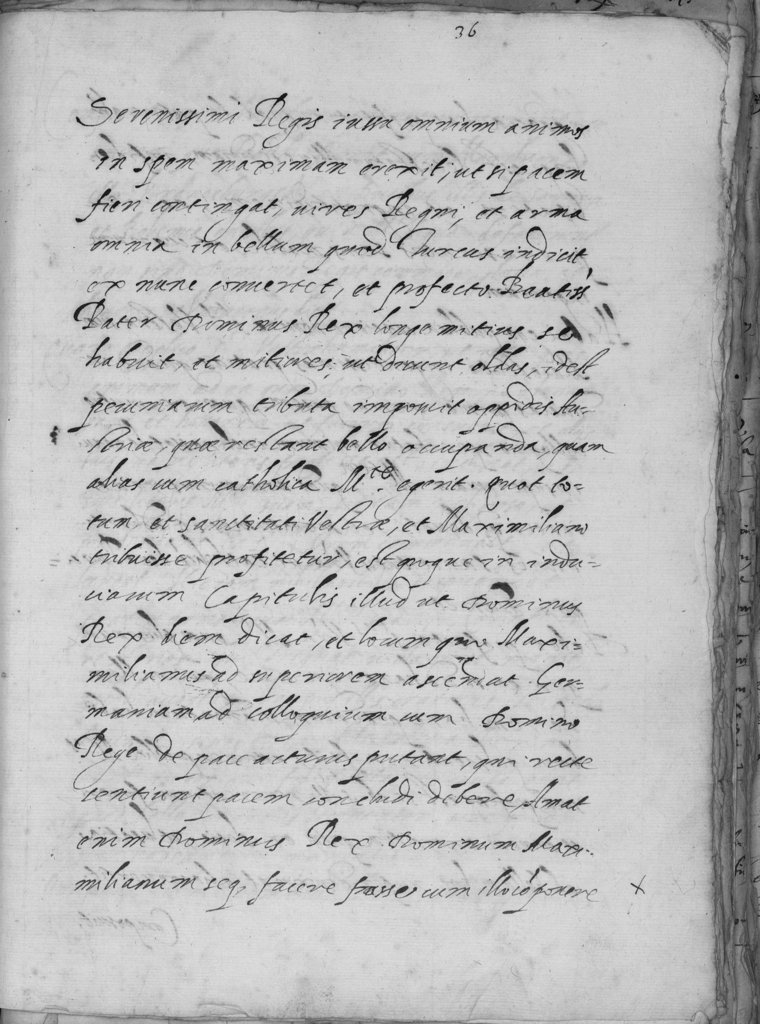 36
Serenissimi Regis iussu omnium animos
in spem maximam erexit, ut si pacem
fieri contingat, vires Regni, et arma
omnia in bellum quod Turcus indicit
ex nunc convertet, et profecto Beatiss.
Pater Dominus Rex longe mitius se
habuit, et mitiores, ut dicunt oblas, idest
pecuniarum tributa imponit oppidis Au-
striæ, quæ restant bello occupanda, quam
alias cum catholica M.te egerit. Quot to-
tum et sanctitati Vestræ, et Maximiliano
tribuisse profitetur, est quoque in indu-
ciarum Capitulis illud ut Dominus
Rex diem dicat, et locum quo Maxi-
milianus ad superiorem ascendat Ger-
maniam ad colloquium cum Domino
Rege de pace acturus putant, qui recte
sentiunt pacem concludi debere Amat
enim Dominus Rex Dominum Maxi-
milianum seq. facere posse cum illo cõponere